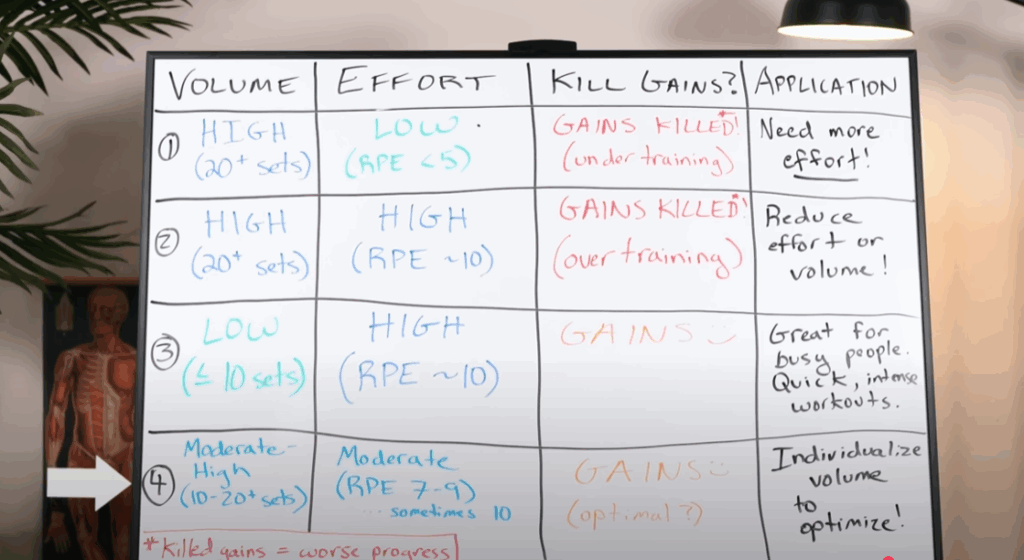 VOLUME EFFORT KILL GAINS? APPLICATION
① HIGH
(20+ sets)
LOW
(RPE <5)
GAINS KILLED*!
(undertraining)
Need more
effort!
② HIGH
(20+ sets)
HIGH
(RPE ~10)
GAINS KILLED*!
(overtraining)
Reduce
effort or
volume!
③ LOW
(≤ 10 sets)
HIGH
(RPE ~10)
GAINS
Great for
busy people.
Quick, intense
workouts.
④ Moderate-
High
(10-20+ sets)
Moderate
(RPE 7-9)
... sometimes 10
GAINS
(optimal?)
Individualize
volume
to
optimize!
*Killed gains = worse progress